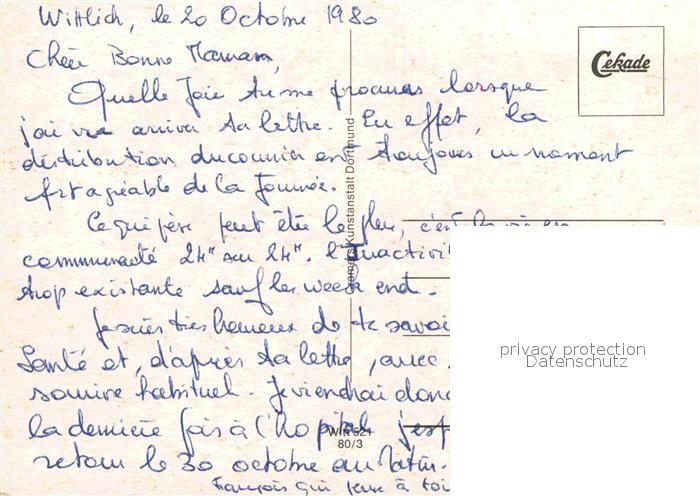 Wittlich, le 20 Octobre 1980
Cekade
Chère Bonne Maman,
Quelle Joie tu me procures lorsque
j'ai vu arriver ta lettre. En effet, la
distribution du courrier est toujours un moment
fort agréable de la Journée.
Ce qui pèse peut être le plus, c'est la vie en
communauté 24H sur 24H. l'Inactivit
trop existante sauf les week end.
Je suis très heureux de te savoi
Santé et, d'après ta lettre, avec
sourire habituel. Je viendrai donc
la dernière fois à l'hopital, j'esp
retour le 30 octobre au matin.
François qui pense à toi
Cramers Kunstanstalt Dortmund
WIN 521
80/3
privacy protection
Datenschutz